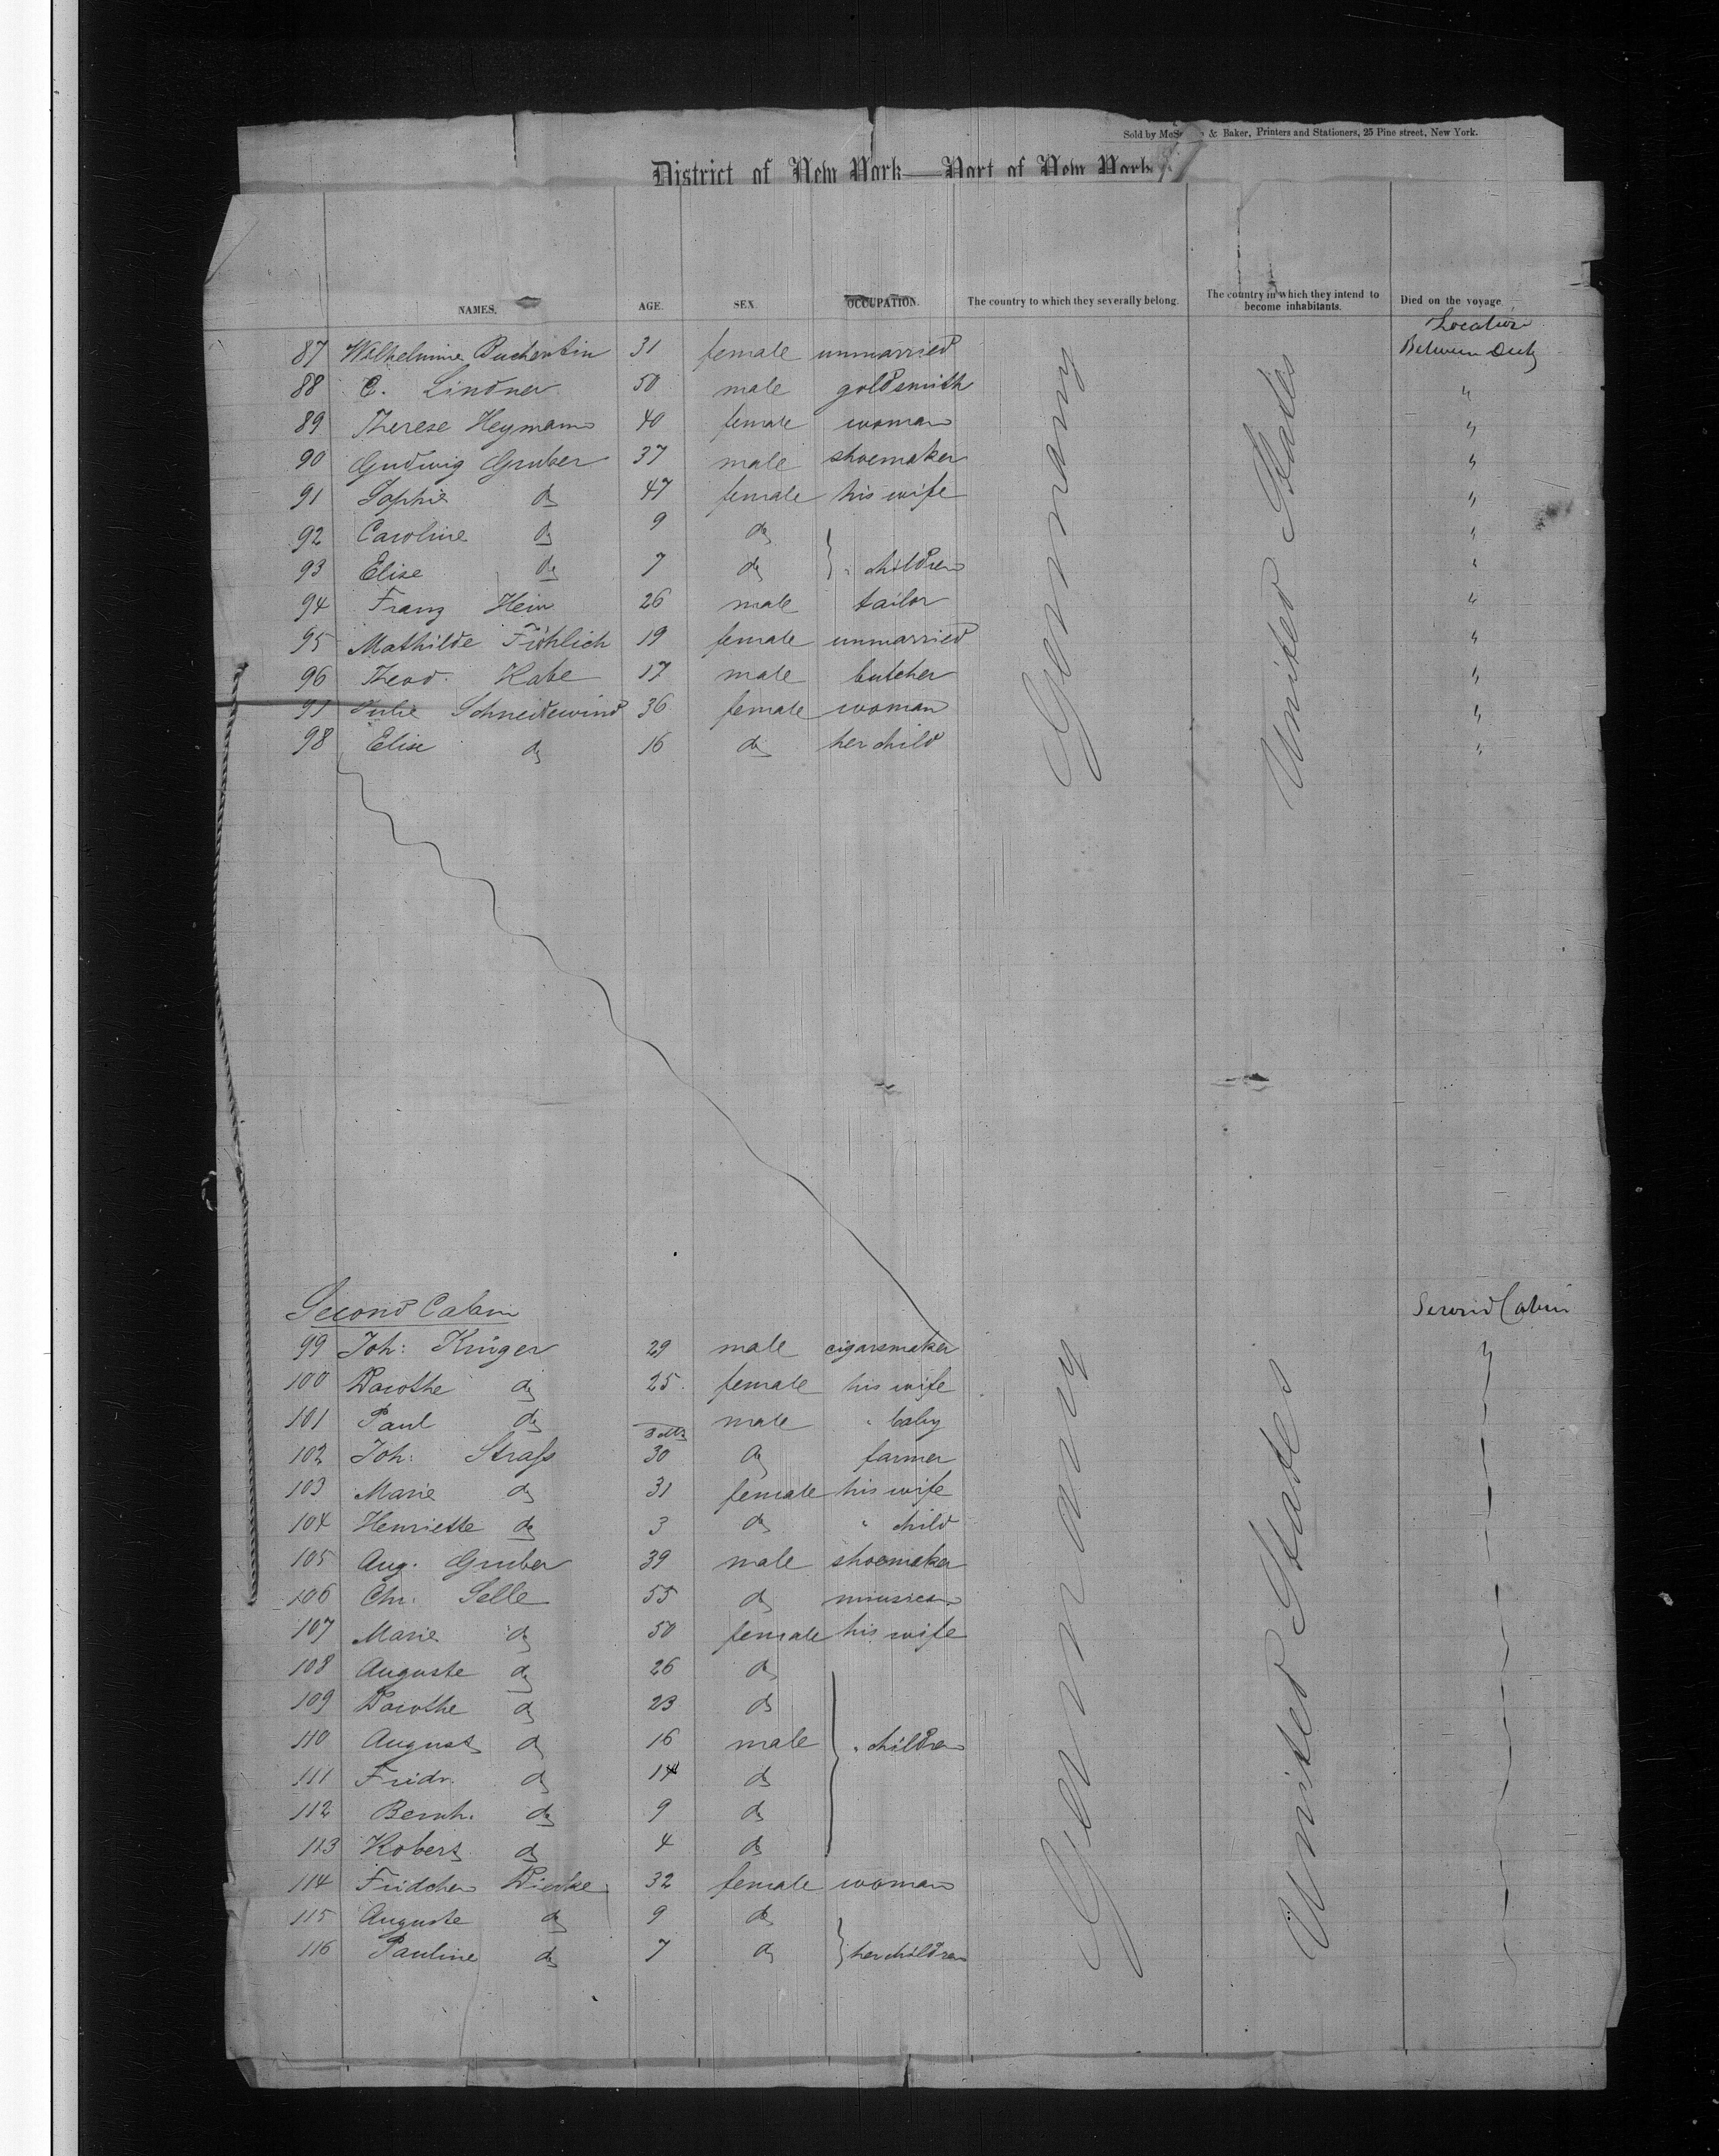 Sold by McS & Baker, Printers and Stationers, 25 Pine street, New York.
District of New York—Port of New York
NAMES. AGE. SEX. OCCUPATION. The country to which they severally belong. The country in which they intend to become inhabitants. Died on the voyage
Location
87 Wilhelmine Puchentin 31 female unmarried Between Deck
88 C. Lindner 50 male goldsmith "
89 Therese Heymann 40 female woman "
90 Gudwig Gruber 37 male shoemaker "
91 Sophie do 47 female his wife "
92 Caroline do 9 do "
93 Elise do 7 do " children "
94 Franz Hein 26 male tailor "
95 Mathilde Fröhlich 19 female unmarried "
96 Theod. Kabe 17 male butcher "
97 Julie Schneidewind 36 female woman "
98 Elise do 16 do her child "
Germany
United States
Second Cabin Second Cabin
99 Joh: Krüger 29 male cigarsmaker "
100 Dorothe do 25. female his wife
101 Paul do male " baby
102 Joh: Strafs 30 do farmer
103 Marie do 31 female his wife
104 Henriette do 3 do " child
105 Aug. Gruber 39 male shoemaker
106 Chr. Selle 55 do
107 Marie do 50 female his wife
108 Auguste do 26 do
109 Dorothe do 23 do
110 August do 16 male " children
111 Friedr. do 14 do
112 Bernh. do 9 do
113 Robert do 4 do
114 32 female woman
115 Auguste do 9 do
116 Pauline do 7 do her children
Germany
United States